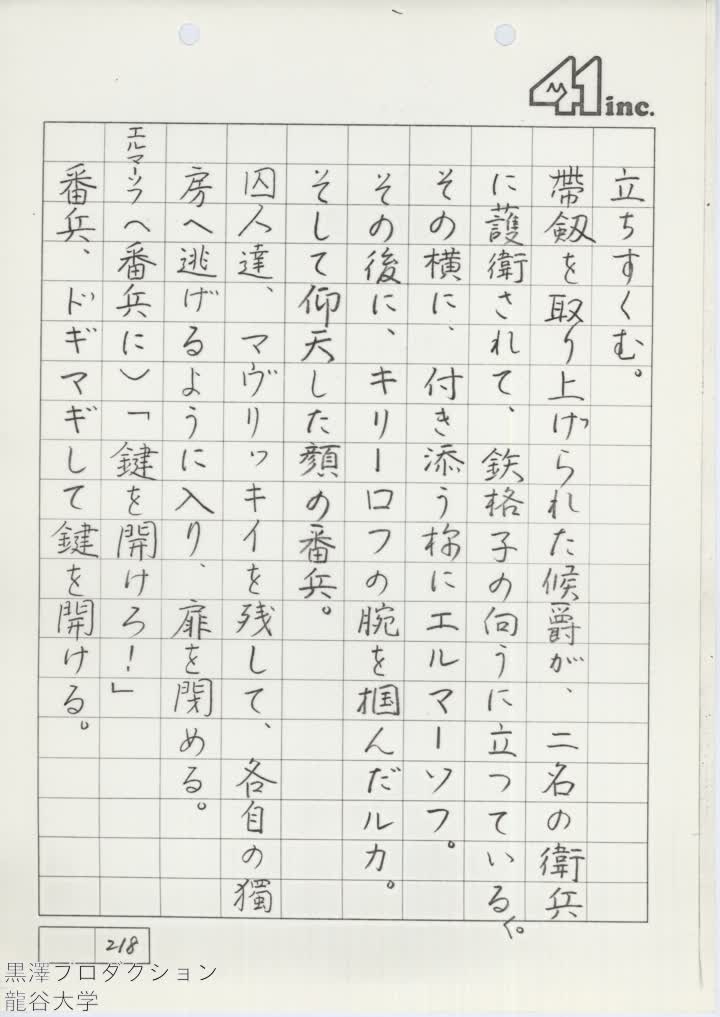 41 inc.
立ちすくむ。
帶劔を取り上げられた候爵が、二名の衛兵
に護衛されて、鉄格子の向うに立つている。
その横に、付き添う様にエルマーソフ。
その後に、キリーロフの腕を掴んだルカ。
そして仰天した顔の番兵。
囚人達、マヴリッキイを残して、各自の獨
房へ逃げるように入り、扉を閉める。
エルマーソフ(番兵に)「鍵を開けろ!」
番兵、ドギマギして鍵を開ける。
218
黒澤プロダクション
龍谷大学